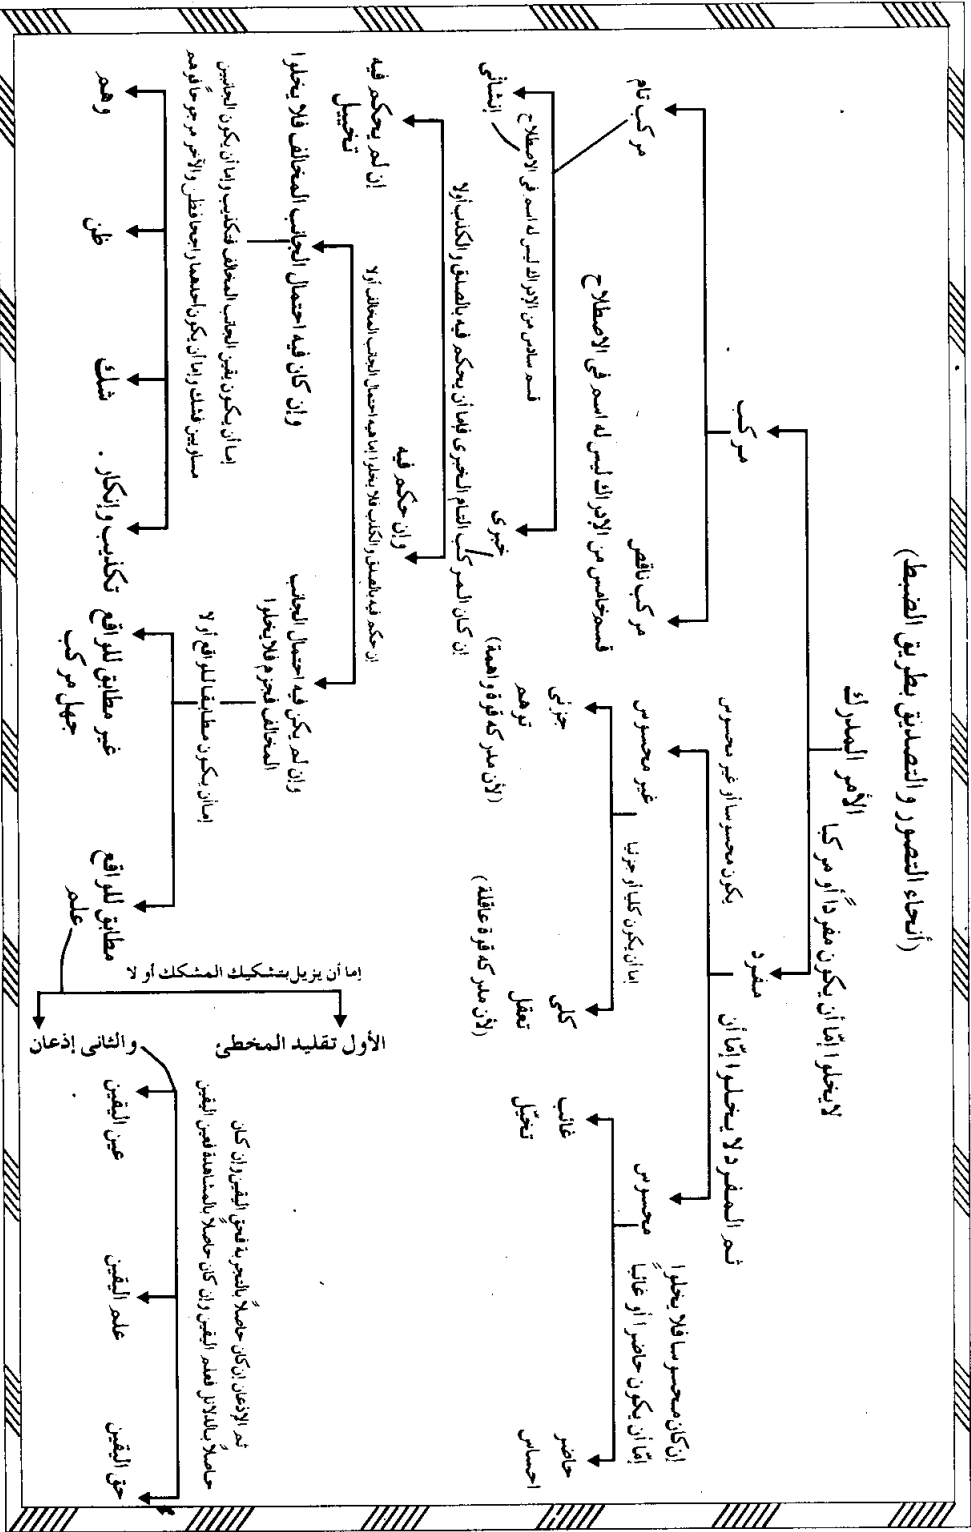 (أنحاء التصور والتصديق بطريق الضبط)
الأمر المدرك
لا يخلوا إمّا أن يكون مفرداً أو مركبا
مركب
مفرد
ثم المفرد لا يخلوا إمّا أن
يكون محسوسا أو غير محسوس
مركب تام
مركب ناقص
قسم خامس من الإدراك ليس له اسم فى الاصطلاح
غير محسوس
إما أن يكون كليا أو جزئيا
محسوس
إن كان محسوسا فلا يخلوا
إمّا أن يكون حاضرا أو غائبا
جزئى
توهم
(لأن مدركه قوة واهمة)
كلى
تعقل
(لأن مدركه قوة عاقلة)
غائب
تخيّل
حاضر
احساس
إنشائى
قسم سادس من الإدراك ليس له اسم فى الاصطلاح
خبرى
إن كان المركب التام الخبرى فإما أن يحكم فيه بالصدق والكذب أولا
إن لم يحكم فيه
تخييل
وإن حكم فيه
إن حكم فيه بالصدق والكذب فلا يخلوا إما فيه احتمال الجانب المخالف أولا
وإن كان فيه احتمال الجانب المخالف فلا يخلوا
إما أن يكون يقين الجانب المخالف فتكذيب وإما أن يكون الجانبين
مساويين فشك وإما أن يكون أحدهما راجحا فظن والآخر مرجوحا فوهم
وهم
ظن
شك
تكذيب وإنكار.
وإن لم يكن فيه احتمال الجانب
المخالف فجزم فلا يخلوا
إما أن يكون مطابقا للواقع أو لا
غير مطابق للواقع
جهل مركب
مطابق للواقع
علم
إما أن يزيل بتشكيك المشكك أو لا
الأول تقليد المخطئ
والثانى إذعان
ثم الإذعان إن كان حاصلاً بالتجربة فحق اليقين وإن كان
حاصلاً بالدلائل فعلم اليقين وإن كان حاصلا بالمشاهدة فعين اليقين
عين اليقين
علم اليقين
حق اليقين